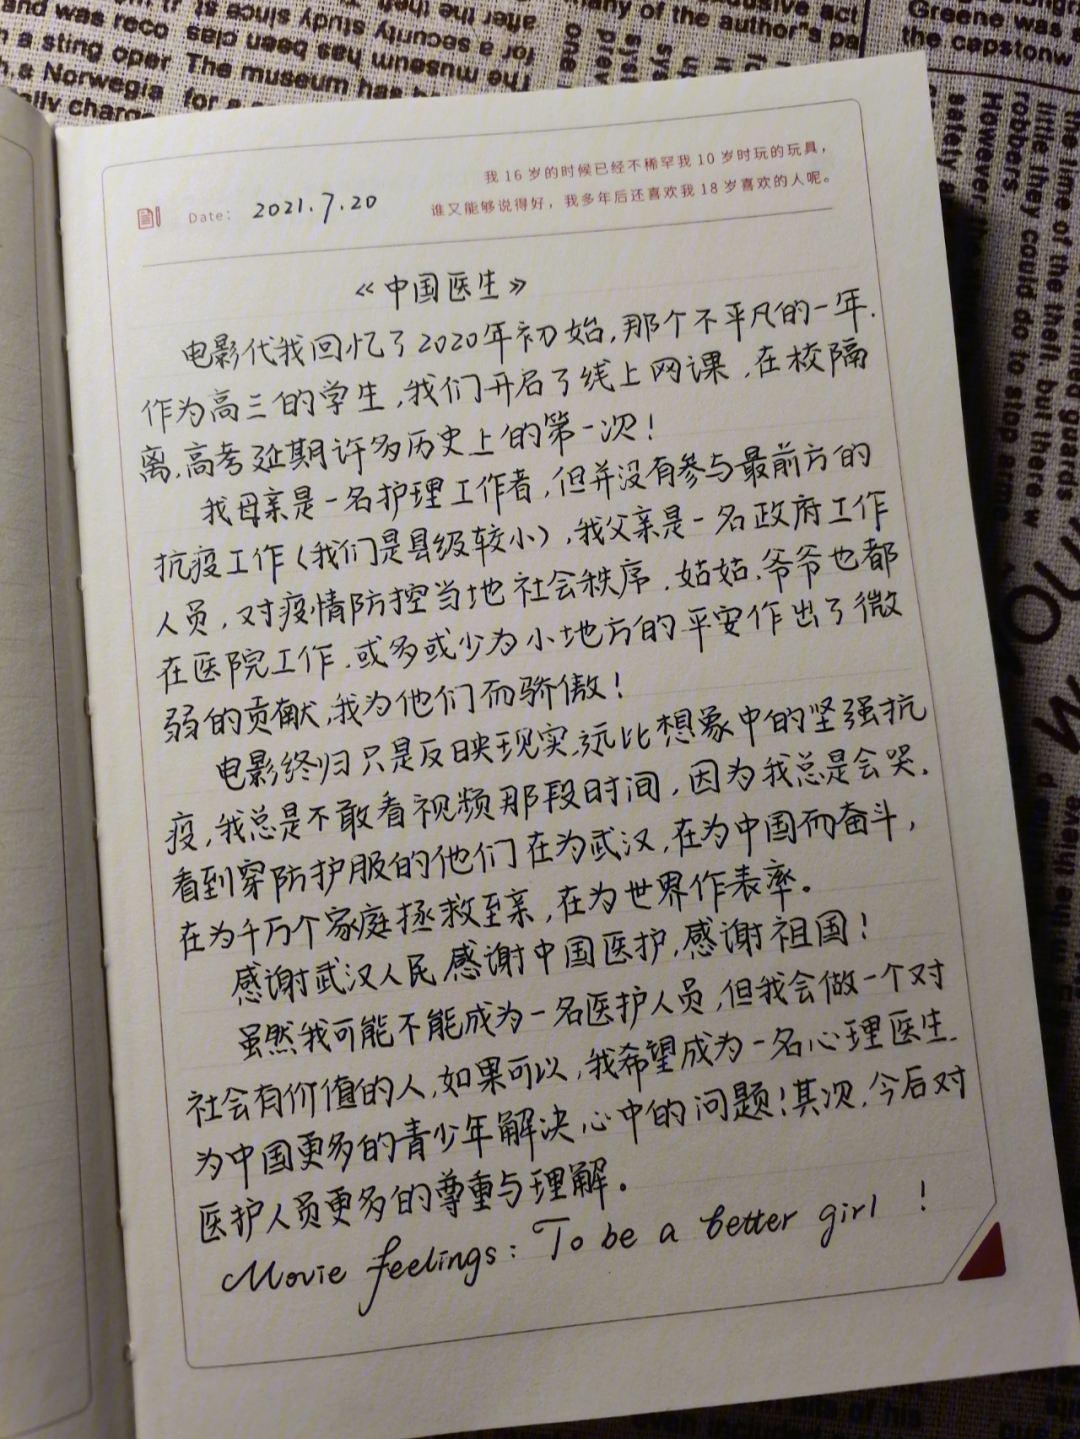 我 16 岁的时候已经不稀罕我 10 岁时玩的玩具，
谁又能够说得好，我多年后还喜欢我 18 岁喜欢的人呢。
Date: 2021.7.20
《中国医生》
电影代我回忆了2020年初始,那个不平凡的一年.
作为高三的学生,我们开启了线上网课,在校隔
离,高考延期许多历史上的第一次!
我母亲是一名护理工作者,但并没有参与最前方的
抗疫工作(我们是县级较小),我父亲是一名政府工作
人员,对疫情防控当地社会秩序.姑姑.爷爷也都
在医院工作.或多或少为小地方的平安作出了微
弱的贡献,我为他们而骄傲!
电影终归只是反映现实,远比想象中的坚强抗
疫,我总是不敢看视频那段时间,因为我总是会哭.
看到穿防护服的他们在为武汉,在为中国而奋斗,
在为千万个家庭拯救至亲,在为世界作表率。
感谢武汉人民,感谢中国医护,感谢祖国!
虽然我可能不能成为一名医护人员,但我会做一个对
社会有价值的人,如果可以,我希望成为一名心理医生.
为中国更多的青少年解决心中的问题!其次.今后对
医护人员更多的尊重与理解。
Movie feelings: To be a better girl !
and was reco
a sting oper
Norwegia
ally charge
The museum has
for a security study since
The museum has been
after the
many of the author's pa
Greene was
the capstonw
safety
However, the
robbers
little they could do to stop arme
the time of the theft, but there w
guards